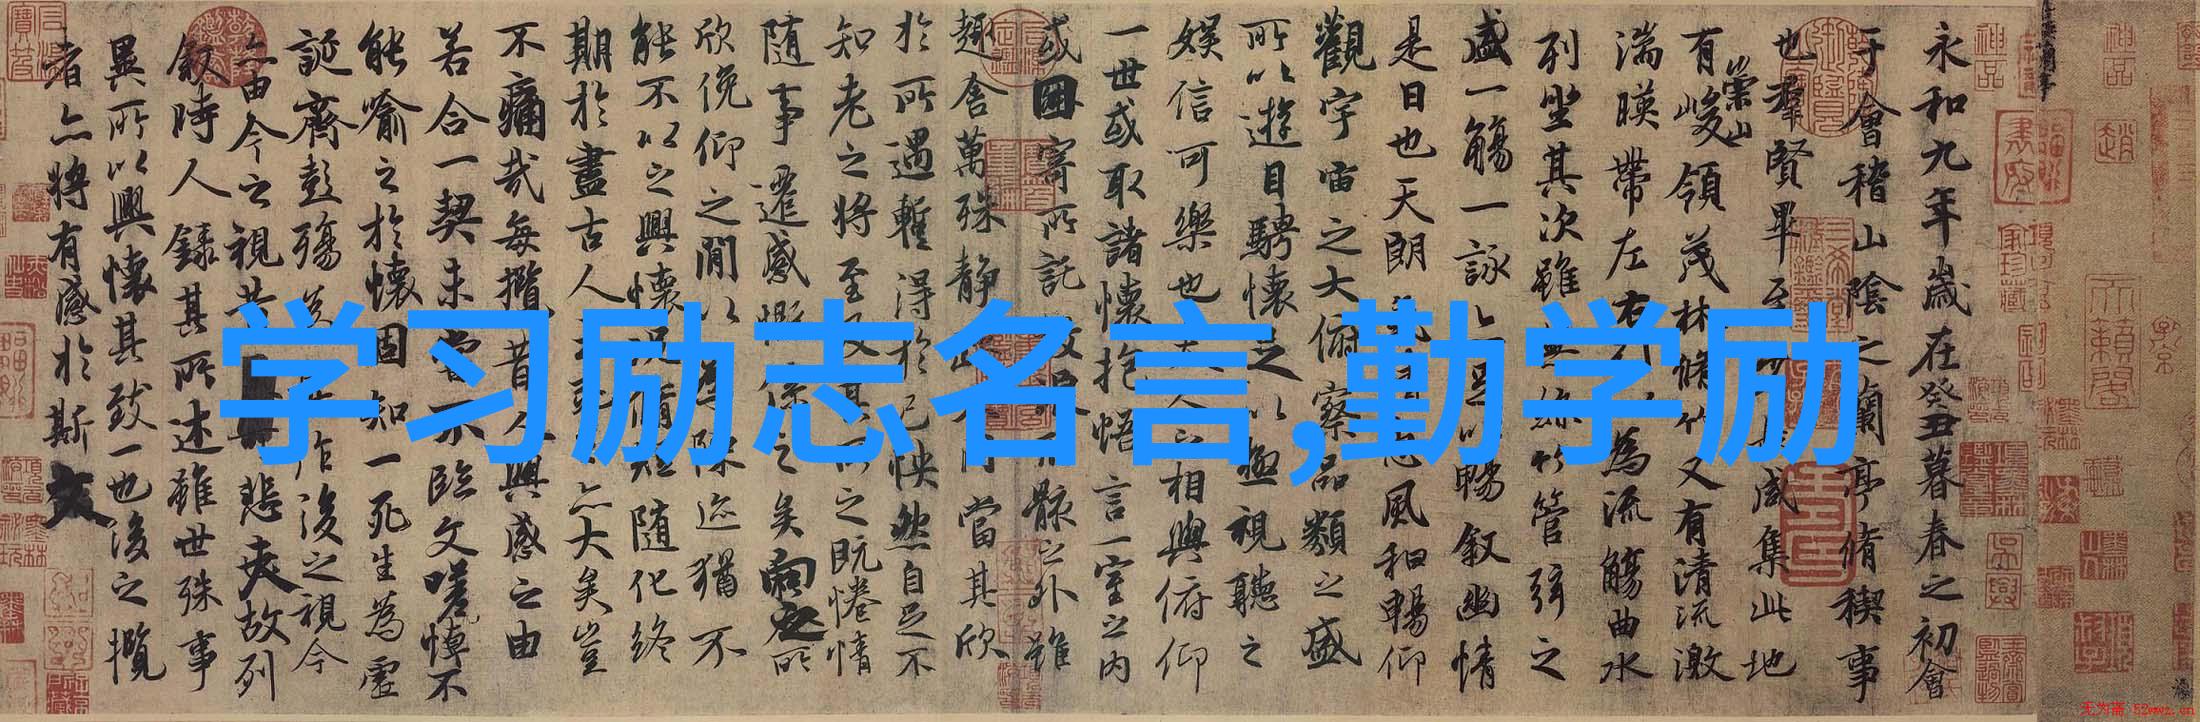 学习励志名言,勤学励
永和九年歲在癸丑暮春之初會
于會稽山陰之蘭亭脩稧事
也羣賢畢至咸集此地
有崇山峻領茂林脩竹又有清流激
湍暎帶左右為流觴曲水
列坐其次雖無絲竹管弦之
盛一觴一詠亦足以暢叙幽情
是日也天朗氣清惠風和暢仰
觀宇宙之大俯察品類之盛
所以遊目騁懷足以極視聽之
娛信可樂也夫人之相與俯仰
一世或取諸懷抱悟言一室之内
或因寄所託放浪形骸之外雖
趣舍萬殊静躁不同當其欣
於所遇蹔得於己怏然自足不
知老之將至及其所之既惓情
隨事遷感慨係之矣向之所
欣俛仰之閒以為陳迹猶不
能不以之興懷況脩短隨化終
期於盡古人云死生亦大矣豈
不痛哉每攬昔人興感之由
若合一契未嘗不臨文嗟悼不
能喻之於懷固知一死生為虛
誕齊彭殤為妄作後之視今
亦由今之視昔悲夫故列
叙時人錄其所述雖世殊事
異所以興懷其致一也後之攬
者亦將有感於斯文